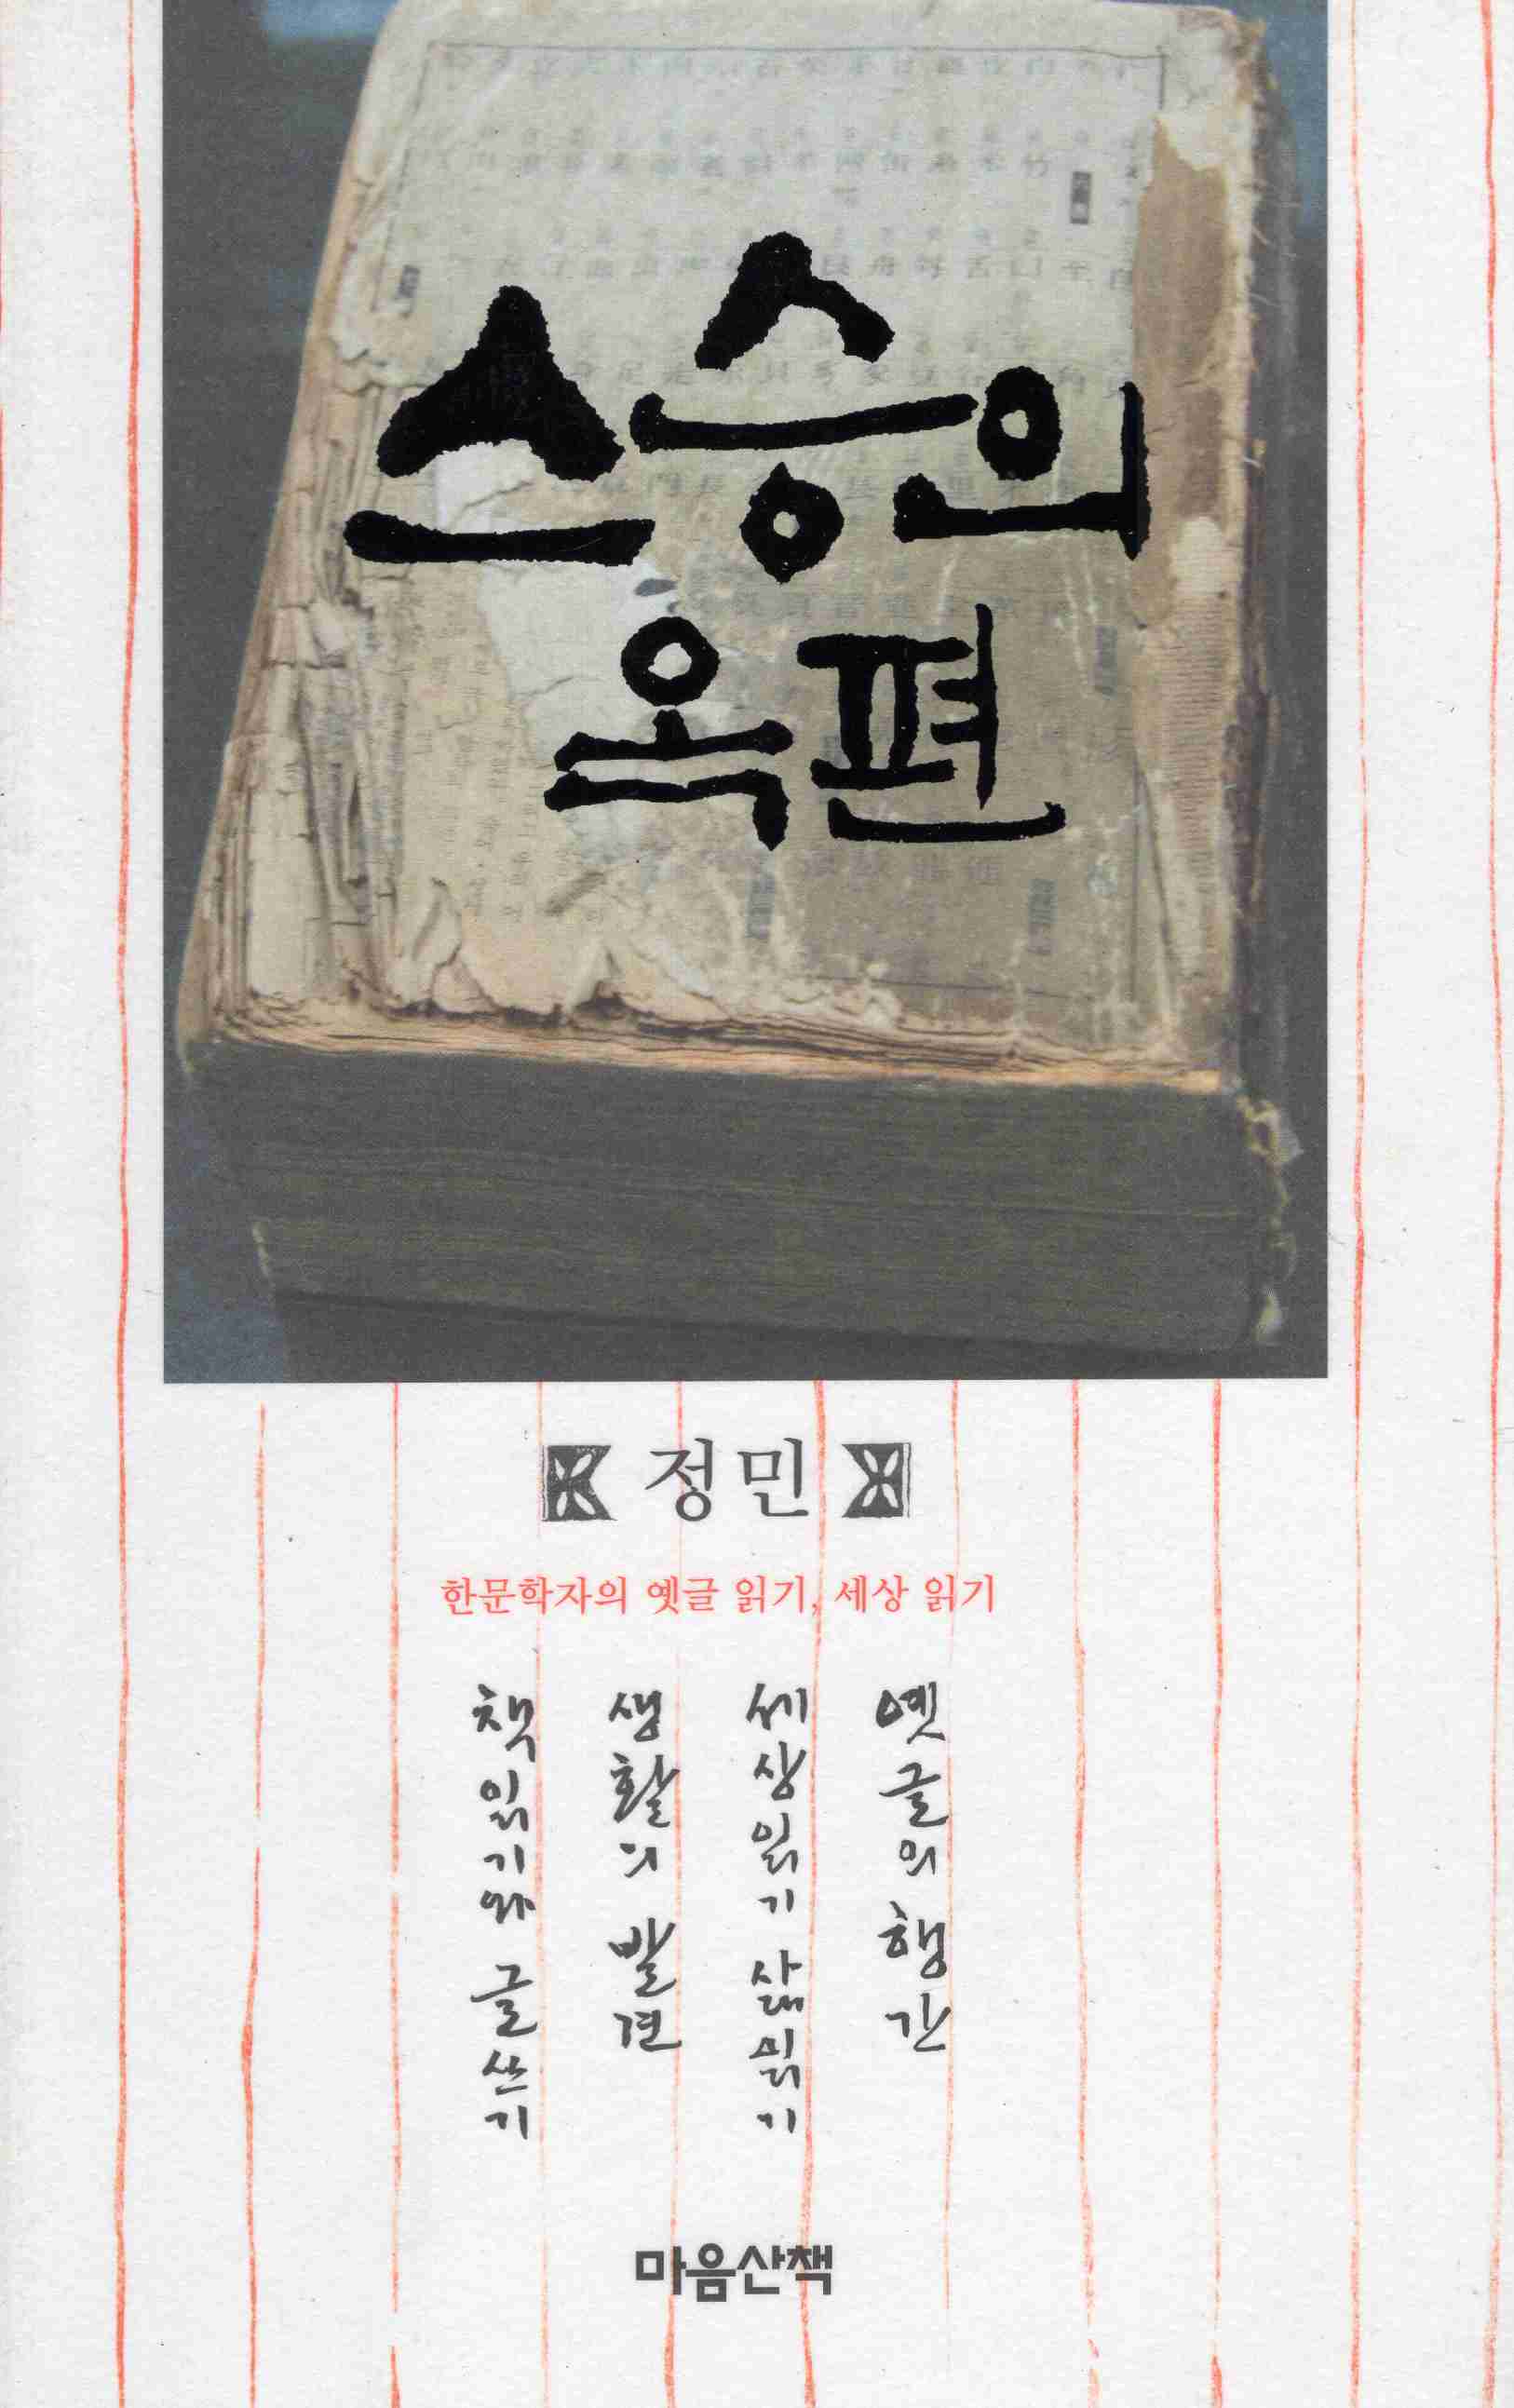 스승의
옥편
정민
한문학자의 옛글 읽기, 세상 읽기
옛글의 행간
세상 읽기 삶 읽기
생활의 발견
책 읽기와 글쓰기
마음산책